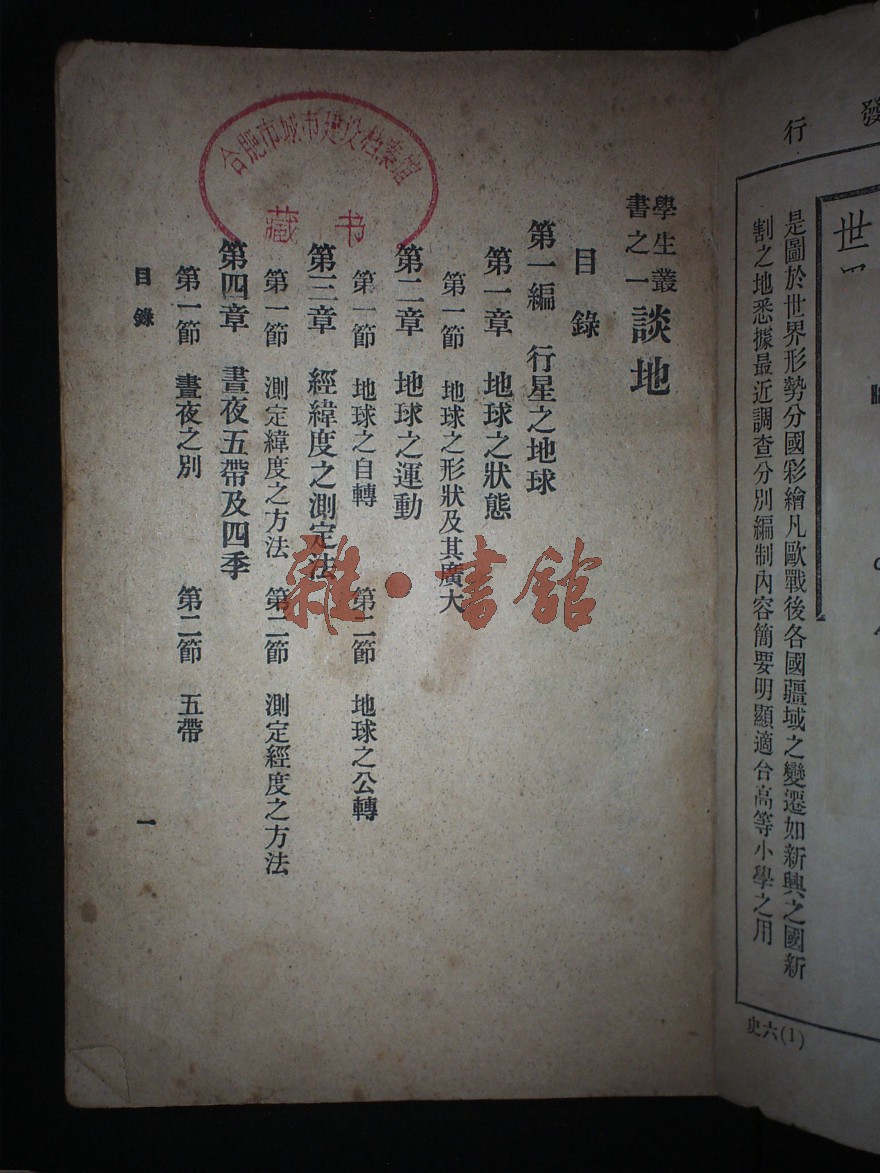 發
行
世
是圖於世界形勢分國彩繪凡歐戰後各國疆域之變遷如新興之國新
割之地悉據最近調查分別編制內容簡要明顯適合高等小學之用
史六(1)
學生叢
書之一
談地
目錄
第一編 行星之地球
第一章 地球之狀態
第一節 地球之形狀及其廣大
第二章 地球之運動
第一節 地球之自轉 第二節 地球之公轉
第三章 經緯度之測定法
第一節 測定緯度之方法 第二節 測定經度之方法
第四章 晝夜五帶及四季
第一節 晝夜之別 第二節 五帶
目錄 一
合肥市城市建设档案馆
藏书
雜·書館